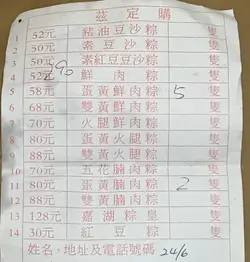 茲定購
1 52元 豬油豆沙粽 隻
2 50元 素豆沙粽 隻
3 50元 素紅豆豆沙粽 隻
4 52元 鮮肉粽 隻
5 58元 蛋黃鮮肉粽 5 隻
6 68元 雙黃鮮肉粽 隻
7 70元 火腿鮮肉粽 隻
8 80元 蛋黃火腿粽 隻
9 88元 雙黃火腿粽 隻
10 70元 五花腩肉粽 隻
11 80元 蛋黃腩肉粽 2 隻
12 88元 雙黃腩肉粽 隻
13 128元 嘉湖粽皇 隻
14 30元 紅豆粽 隻
姓名、地址及電話號碼 24/6